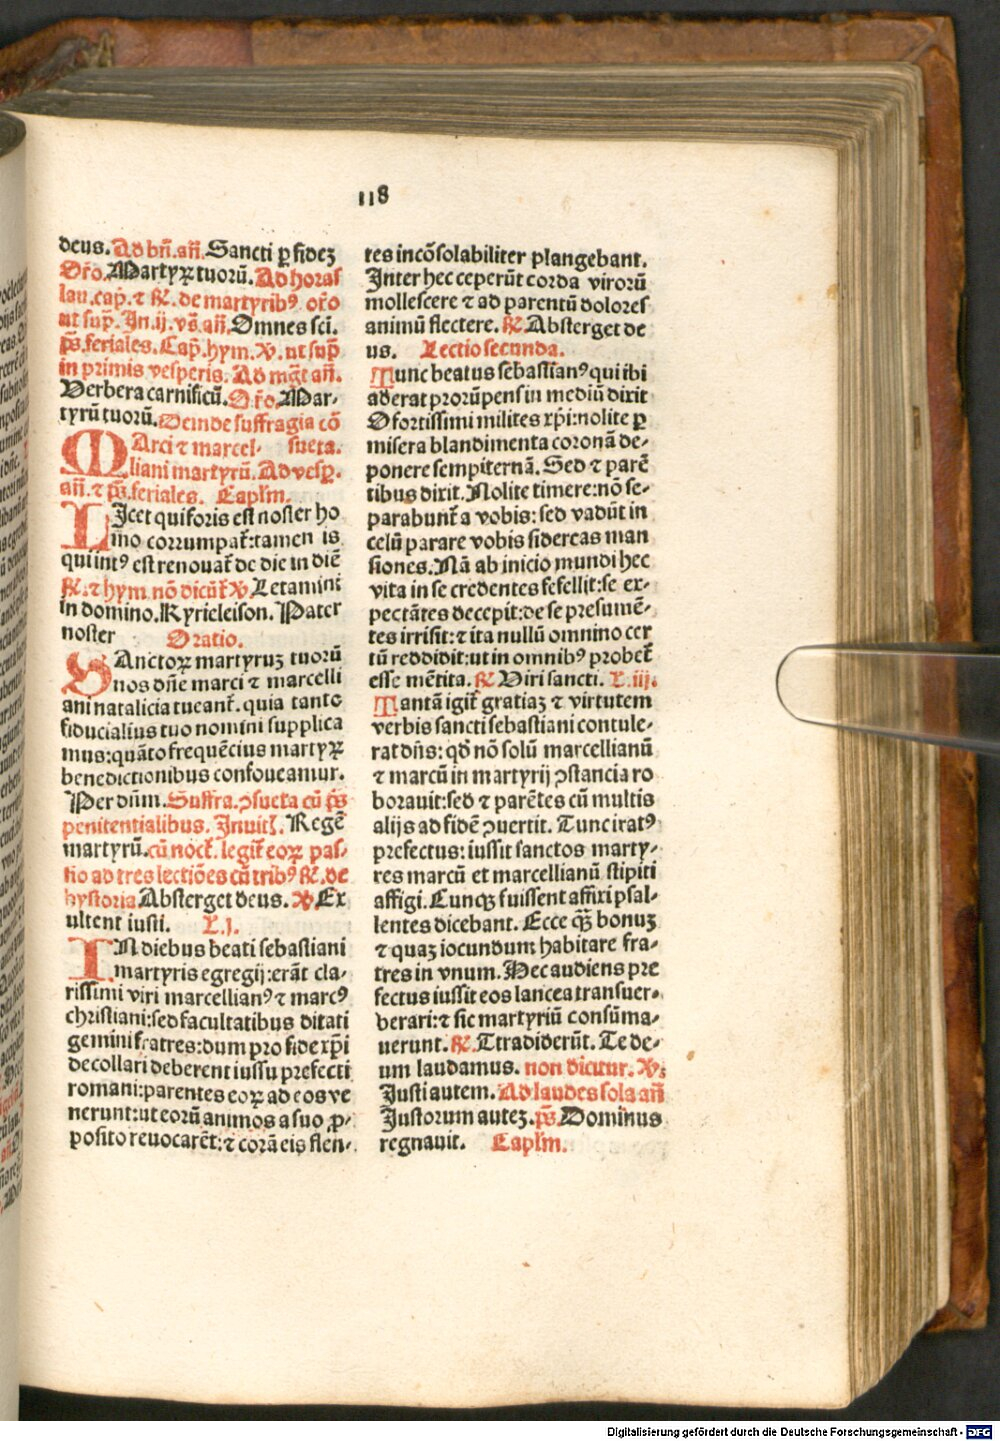 118
deus. Ad bñ. añ. Sancti ꝑ fidez
Oŕo. Martyꝝ tuorū. Ad horas
lau. cap̄. ⁊ ꝶ. de martyribꝰ oŕo
ut sup̄. In .ij. vs̄. añ. Omnes sci.
p̄s. feriales. Cap̄. hym. ꝟ. ut sup̄
in primis vesperis. Ad mḡt añ.
Verbera carnificū. Oŕo. Mar-
tyrū tuorū. Deinde suffragia cō
Marci ⁊ marcel- sueta.
liani martyrū. Ad vesp̄.
añ. ⁊ p̄s. feriales. Caplm̄.
LIcet qui foris est noster ho
mo corrumpat᷑: tamen is
qui intꝰ est renouat᷑ de die in diē
ꝶ. ⁊ hym. nō dicūt᷑ ꝟ Letamini
in domino. Kyrieleison. Pater
noster Oratio.
SAnctoꝝ martyruz tuorū
nos dñe marci ⁊ marcelli
ani natalicia tueant᷑. quia tanto
fiducialius tuo nomini supplica
mus: quāto frequēcius martyꝝ
benedictionibus confoueamur.
Per dñm. Suffra. ꝯsueta cū p̄s
penitentialibus. Inuit̄. Regē
martyrū. cū noct᷑. legit᷑ eoꝝ pas-
sio ad tres lectiōes cū tribꝰ ꝶ. de
hystoria Absterget deus. ꝟ. Ex
ultent iusti. L. j.
IN diebus beati sebastiani
martyris egregij: erāt cla-
rissimi viri marcellianꝰ ⁊ marcꝰ
christiani: sed facultatibus ditati
gemini fratres: dum pro fide xp̄i
decollari deberent iussu prefecti
romani: parentes eoꝝ ad eos ve
nerunt: ut eorū animos a suo ꝓ-
posito reuocarēt: ⁊ corā eis flen-
tes incōsolabiliter plangebant.
Inter hec ceperūt corda virorū
mollescere ⁊ ad parentū dolores
animū flectere. ꝶ. Absterget de
us. Lectio secunda.
Tunc beatus sebastianꝰ qui ibi
aderat prorūpens in mediū dixit
O fortissimi milites xp̄i: nolite ꝑ
misera blandimenta coronā de-
ponere sempiternā. Sed ⁊ parē
tibus dixit. Nolite timere: nō se-
parabunt᷑ a vobis: sed vadūt in
celū parare vobis sidereas man
siones. Nā ab inicio mundi hec
vita in se credentes fefellit: se ex-
pectātes decepit: de se presumē-
tes irrisit: ⁊ ita nullū omnino cer
tū reddidit: ut in omnibꝰ probet᷑
esse mētita. ꝶ. Viri sancti. L. iij.
Tantā igit᷑ gratiaz ⁊ virtutem
verbis sancti sebastiani contule-
rat dñs: qd̄ nō solū marcellianū
⁊ marcū in martyrij ꝯstancia ro
borauit: sed ⁊ parētes cū multis
alijs ad fidē ꝯuertit. Tunc iratꝰ
prefectus: iussit sanctos marty-
res marcū et marcellianū stipiti
affigi. Cunqꝫ fuissent affixi psal-
lentes dicebant. Ecce qꝫ̄ bonuz
⁊ quaz iocundum habitare fra-
tres in vnum. Hec audiens pre
fectus iussit eos lancea transuer-
berari: ⁊ sic martyriū consūma-
uerunt. ꝶ. Ttradiderūt. Te de-
um laudamus. non dicitur. ꝟ.
Iusti autem. Ad laudes sola añ
Iustorum autez. p̄s. Dominus
regnauit. Caplm̄.
Digitalisierung gefördert durch die Deutsche Forschungsgemeinschaft - DFG